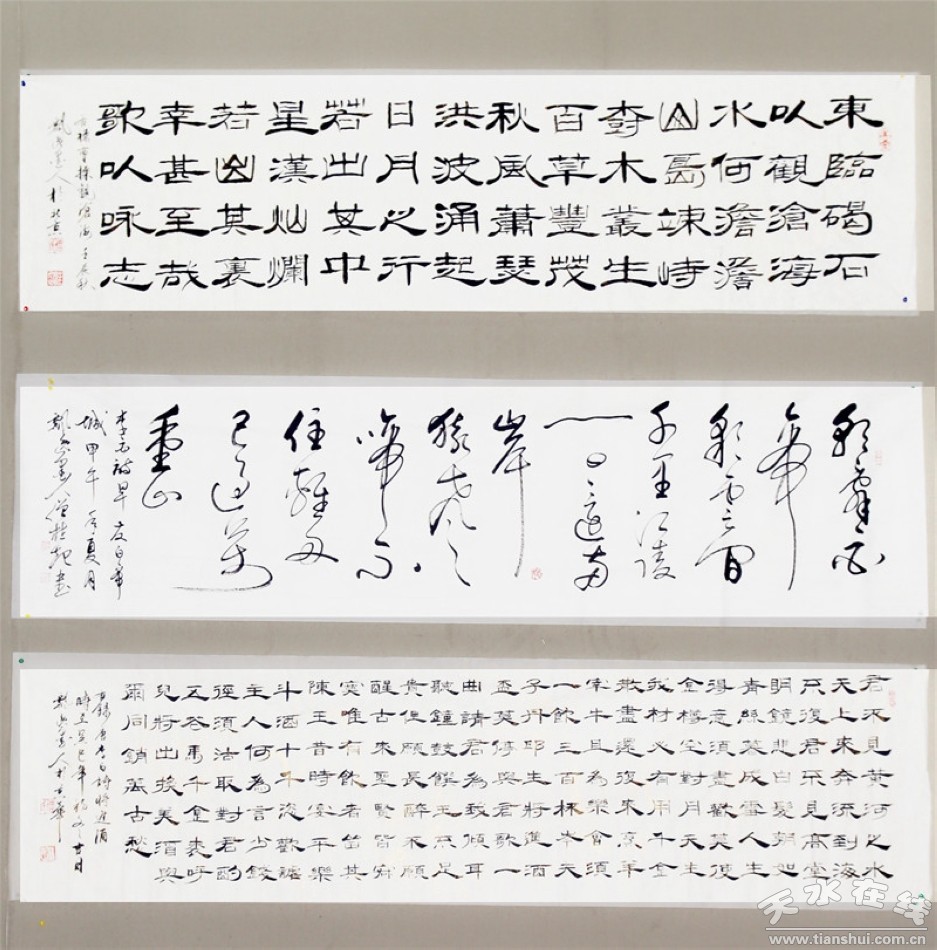 東臨碣石
以觀滄海
水何澹澹
山島竦峙
樹木叢生
百草豐茂
秋風蕭瑟
洪波涌起
日月之行
若出其中
星漢灿爛
若出其裏
幸甚至哉
歌以咏志
朝辭白
帝
彩雲間
千里江陵
一日還兩
岸
猿聲
啼不
住輕舟
已過萬
重山
李白詩早发白帝
城甲午年夏月
君不見黃河之水
天上來奔流到海
不復君不見高堂
明鏡悲白髮朝如
青絲暮成雪人生
得意須盡歡莫使
金樽空對月天生
我材必有用千金
散盡還復來烹羊
宰牛且為樂會須
一飲三百杯岑夫
子丹邱生將進酒
盃莫停與君歌一
曲請君為我傾耳
聽鐘鼓饌玉不足
貴但願長醉不願
醒古來聖賢皆寂
寞唯有飲者留其
陳王昔時宴平樂
斗酒十千恣歡謔
主人何為言少錢
徑須沽取對君酌
五花馬千金裘呼
兒將出換美酒與
爾同銷萬古愁
天水在线
www.tianshui.com.cn